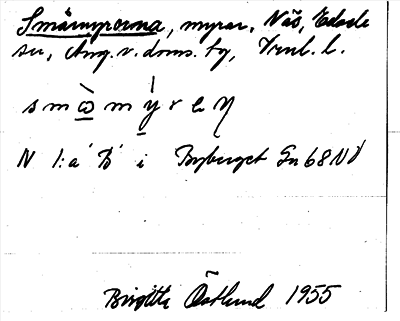 Småmyrorna, myrar, Näs, Edsele
sn, Ång. v. doms. tg, Vnl. l.
N 1:a
i Byberget Gu 68 NV
Birgitta Östlund 1955